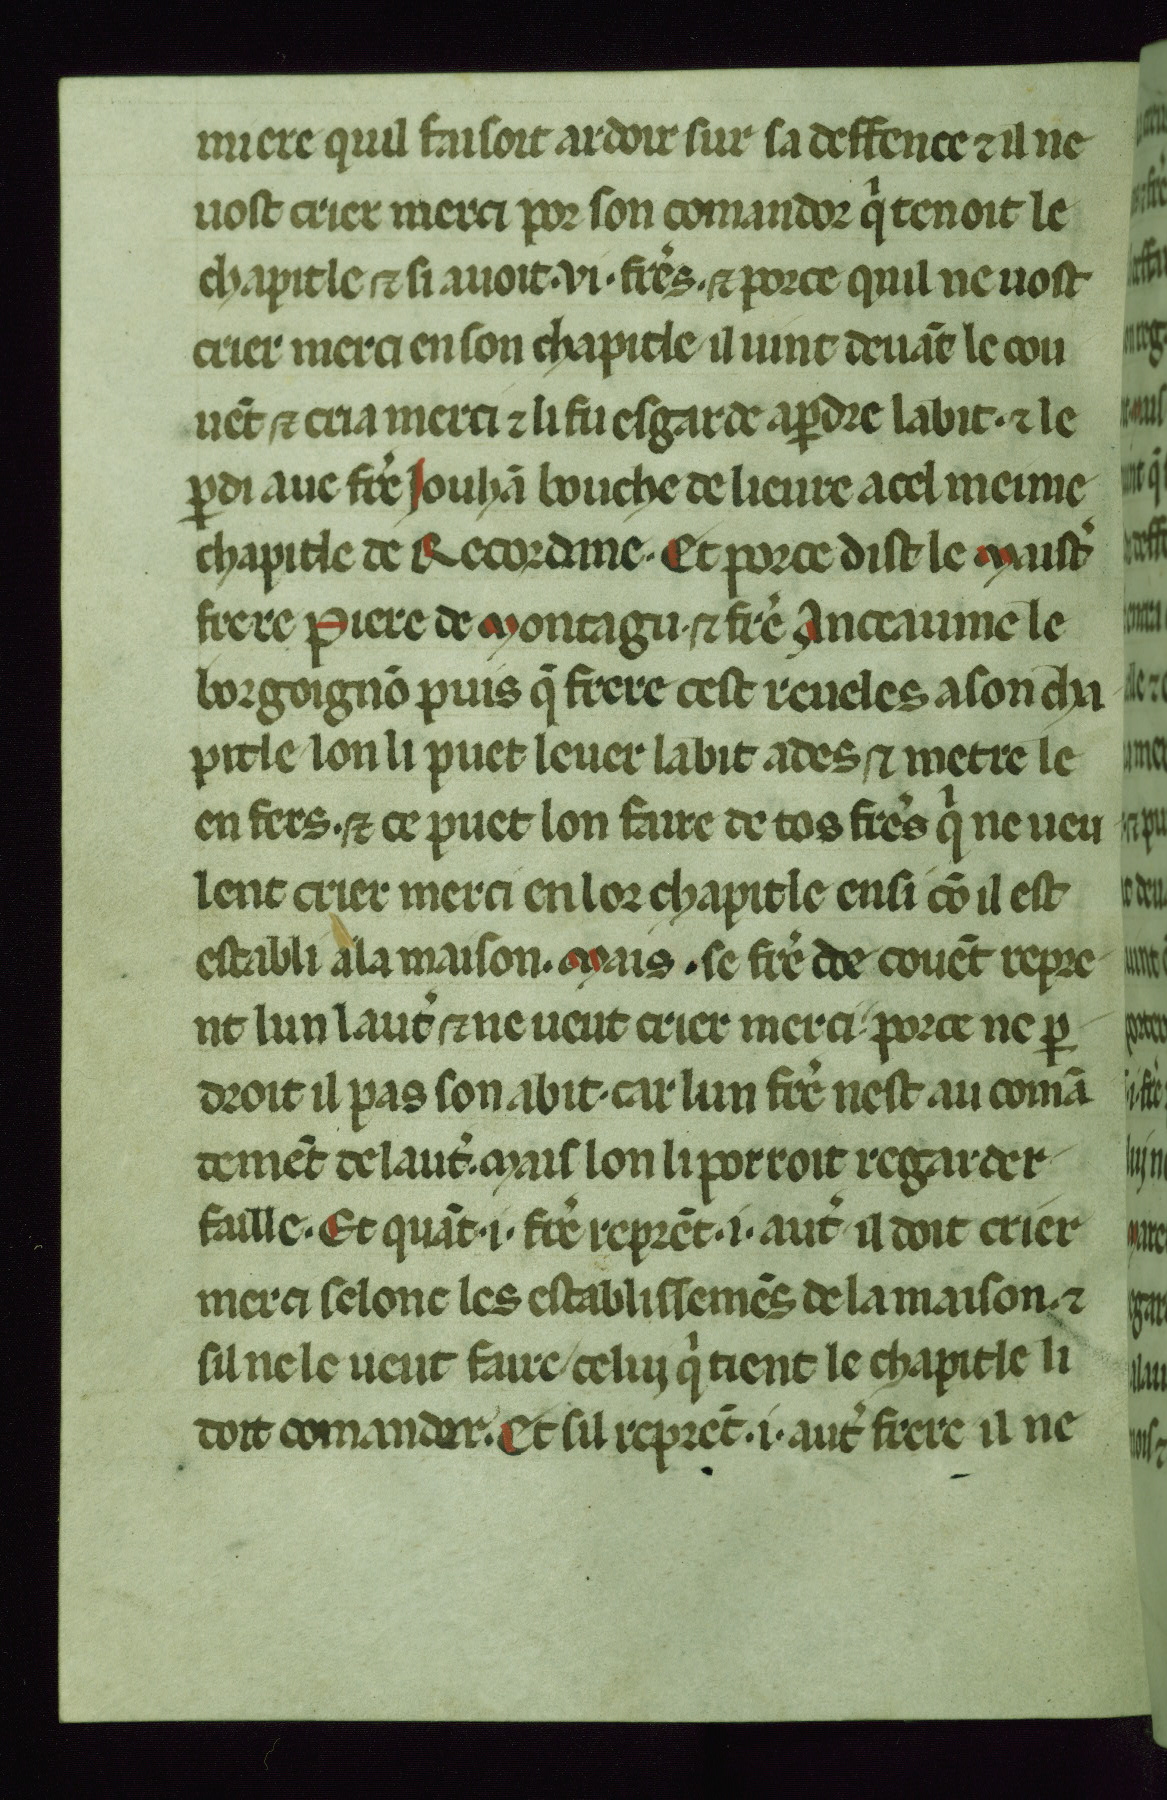 miere quil faisoit ardoir sur sa deffence ⁊ il ne
uost crier merci por son comandor qͥ tenoit le
chapitle ⁊ si auoit·vi·frẽs·⁊ porce quil ne uost
crier merci en son chapitle il uint deuãt le cou
uẽt ⁊ cria merci ⁊ li fu esgarde a ꝑdre labit·⁊ le
ꝑdi aue frẽ Jouhã bouche de lieure a cel meime
chapitle de Recordane·Et porce dist le Maistͬ
frere Piere de Montagu·⁊ frẽ Anceaume le
borgoignõ puis q̃ frere cest reueles a son cha
pitle lon li puet leuer labit ades ⁊ metre le
en fers·⁊ ce puet lon faire de tos frẽs qͥ ne ueu
lent crier merci en lor chapitle ensi cõ il est
establi a la maison·Mais·se frẽ de couẽt repre
nt lun lautͬ ⁊ ne ueut crier merci·porce ne ꝑ
droit il pas son abit·car lun frẽ nest au comã
demẽt de lautͬ·Mais lon li porroit regarder
faille·Et quãt·i·frẽ reprẽt·i·autͬ il doit crier
merci selonc les establissemẽs de la maison·⁊
sil ne le ueut faire celuy qͥ tient le chapitle li
doit comander·Et sil reprẽt·i·autͬ frere il ne